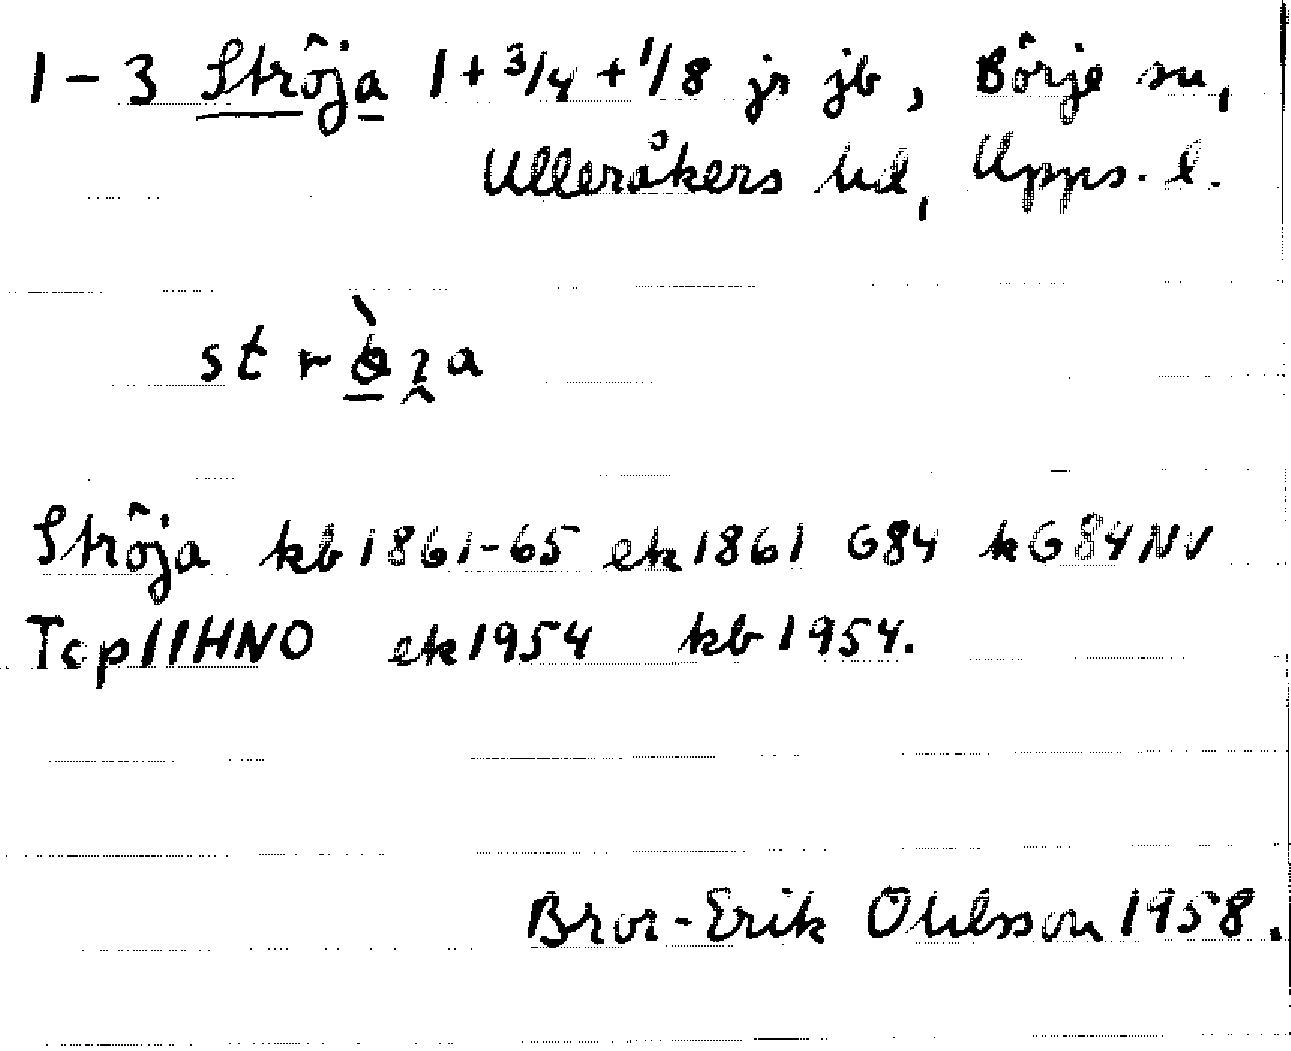 1-3 Ströja 1+3/4+1/8 jr jb, Börje sn,
Ulleråkers hd, Upps. l.
Ströja kb1861-65 ek1861 G84 kG84NV
Top11HNO ek1954 kb1954.
Bror-Erik Ohlsson 1958.